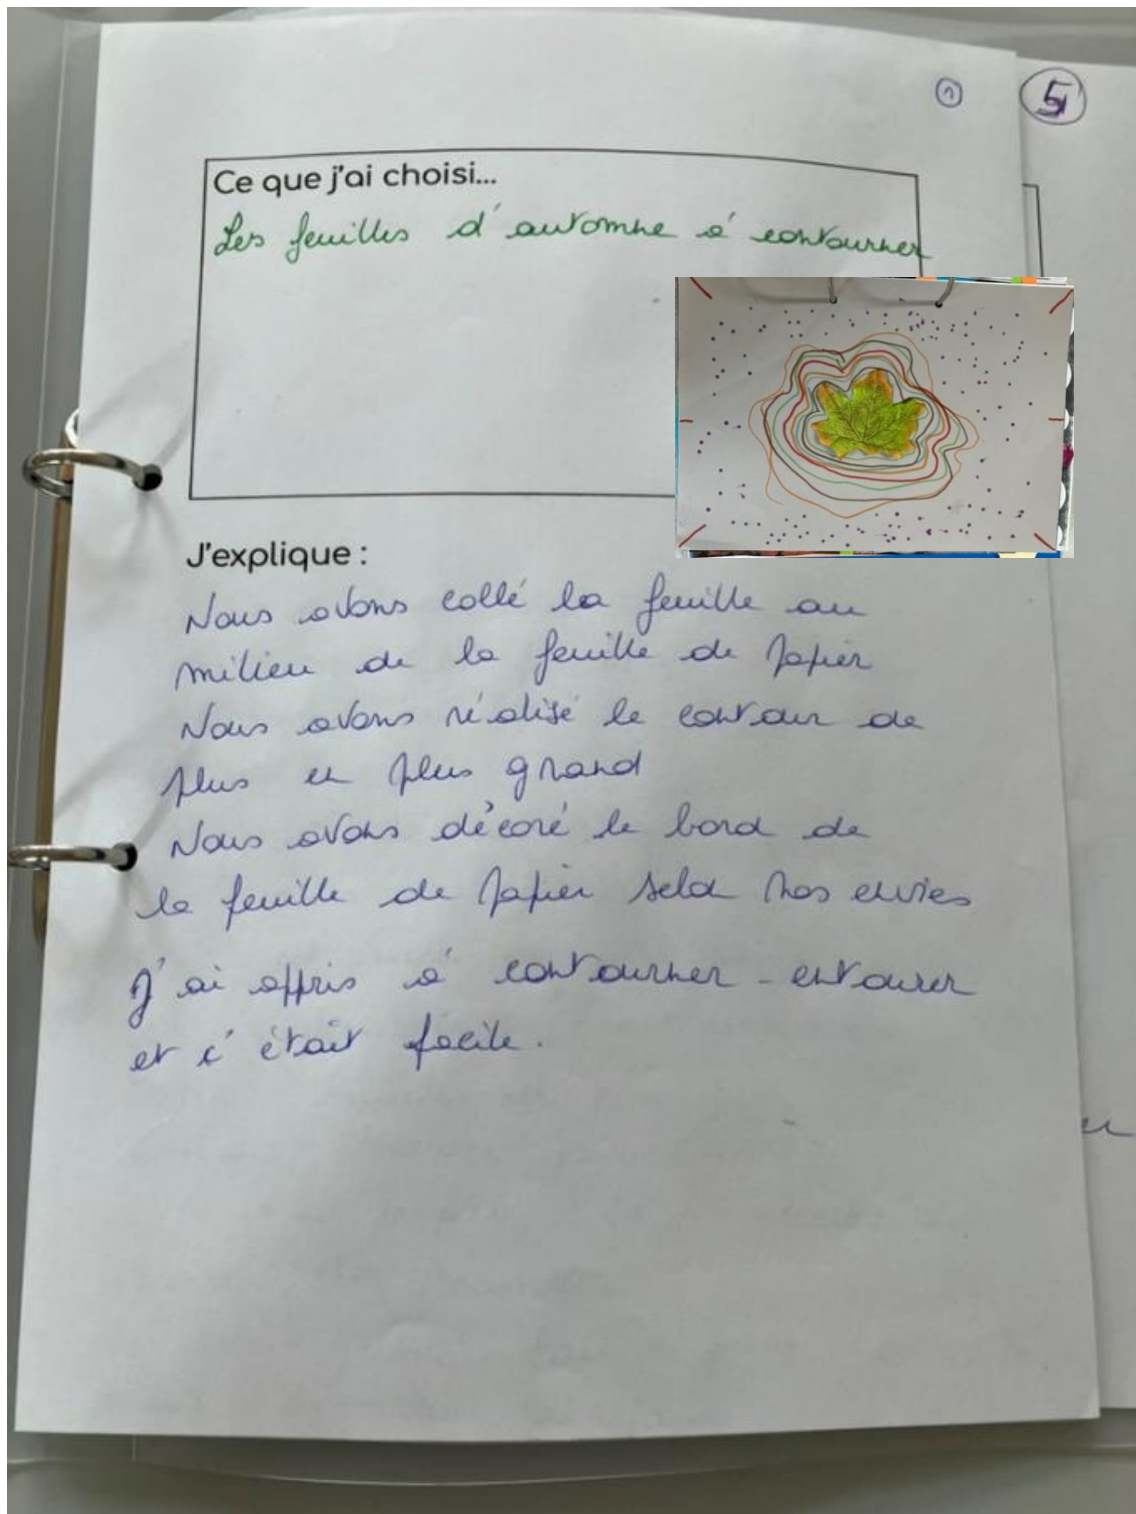 1
5
Ce que j'ai choisi...
Les feuilles d'automne à contourner
J'explique :
Nous avons collé la feuille au
milieu de la feuille de papier
Nous avons réalisé le contour de
plus en plus grand
Nous avons décoré le bord de
la feuille de papier selon nos envies
J'ai appris à contourner - entourer
et c'était facile.